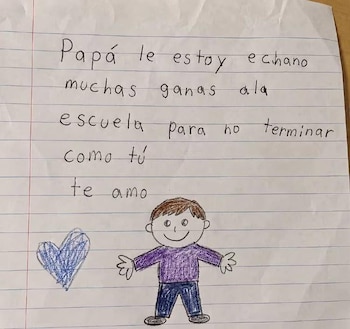 Papá le estoy echano
muchas ganas ala
escuela para no terminar
como tú
te amo